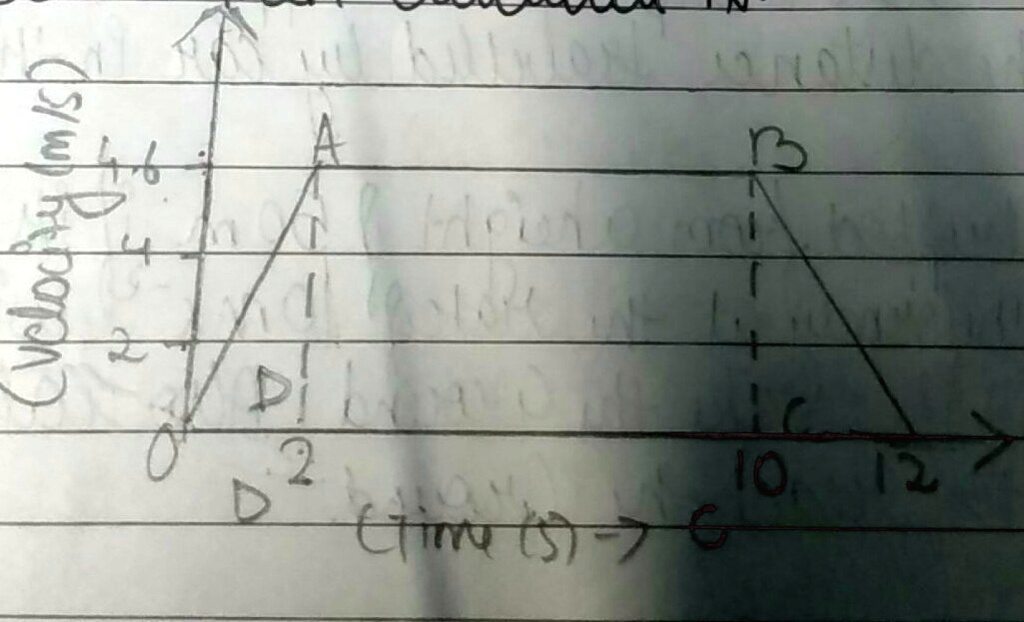 A
B
4.6
4
2
(Velocity (m/s)
D
C
O
2
10
12
D
(Time (s) → C